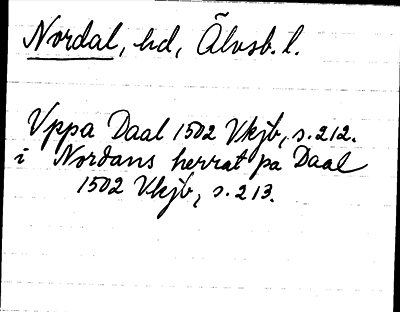 Nordal, hd, Älvsb. l.
Vppa Daal 1502 Vkjb, s. 212.
i Nordans herrat pa Daal
1502 Vkjb, s. 213.